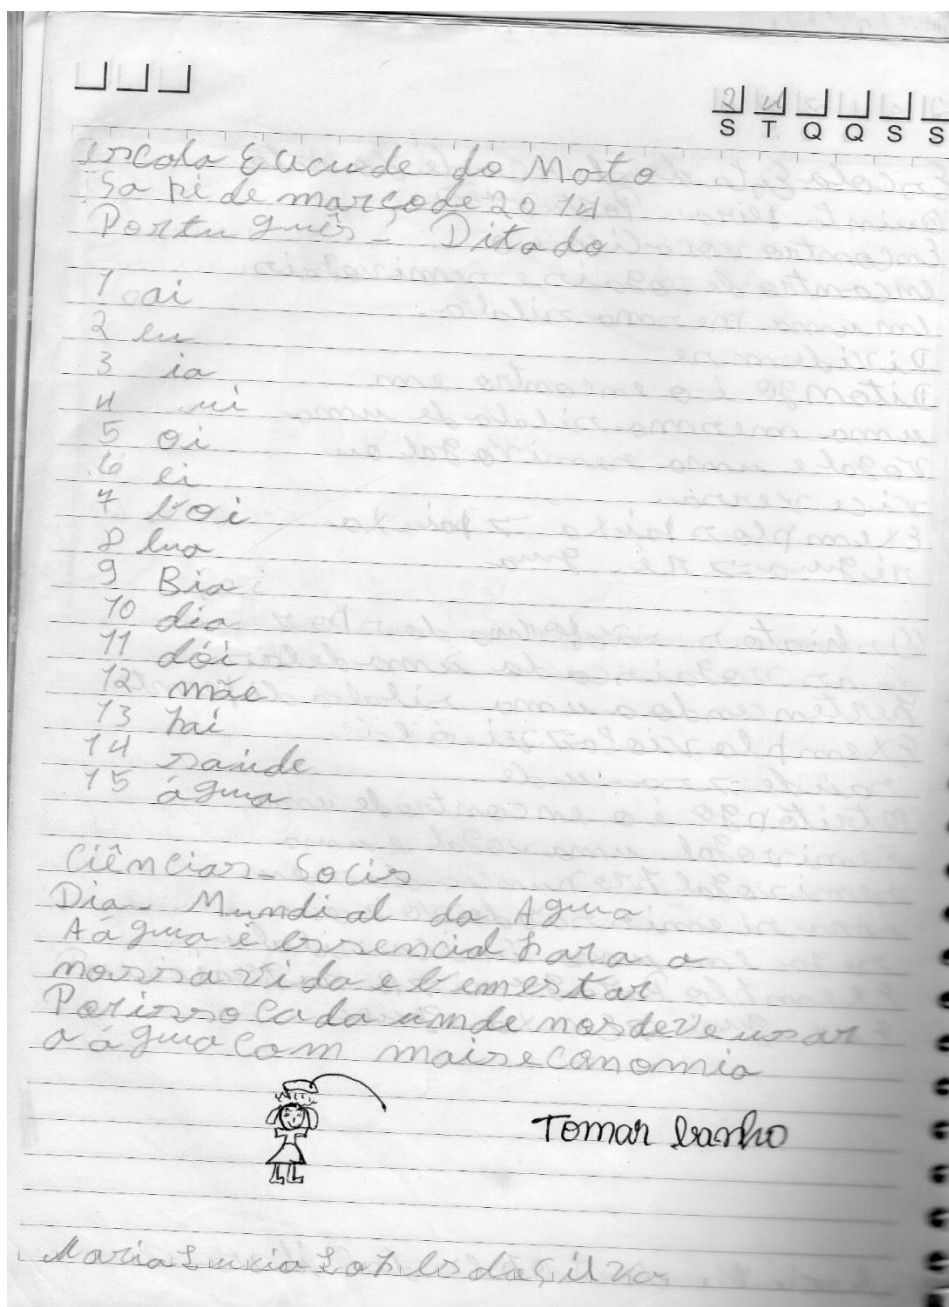 24
S T Q Q S S
Escola Euclide do Mato
Sa pé de março de 2014
Português - Ditado
1 ai
2 eu
3 ia
4 ui
5 oi
6 ei
7 boi
8 lua
9 Bia
10 dia
11 dói
12 mãe
13 pai
14 saúde
15 água
Ciências - Socis
Dia - Mundial da Agua
A água é essencial para a
nossa vida e bem estar
Por isso cada um de nos deve usar
a água com mais economia
Tomar banho
Maria Lucia Lopes da Silva